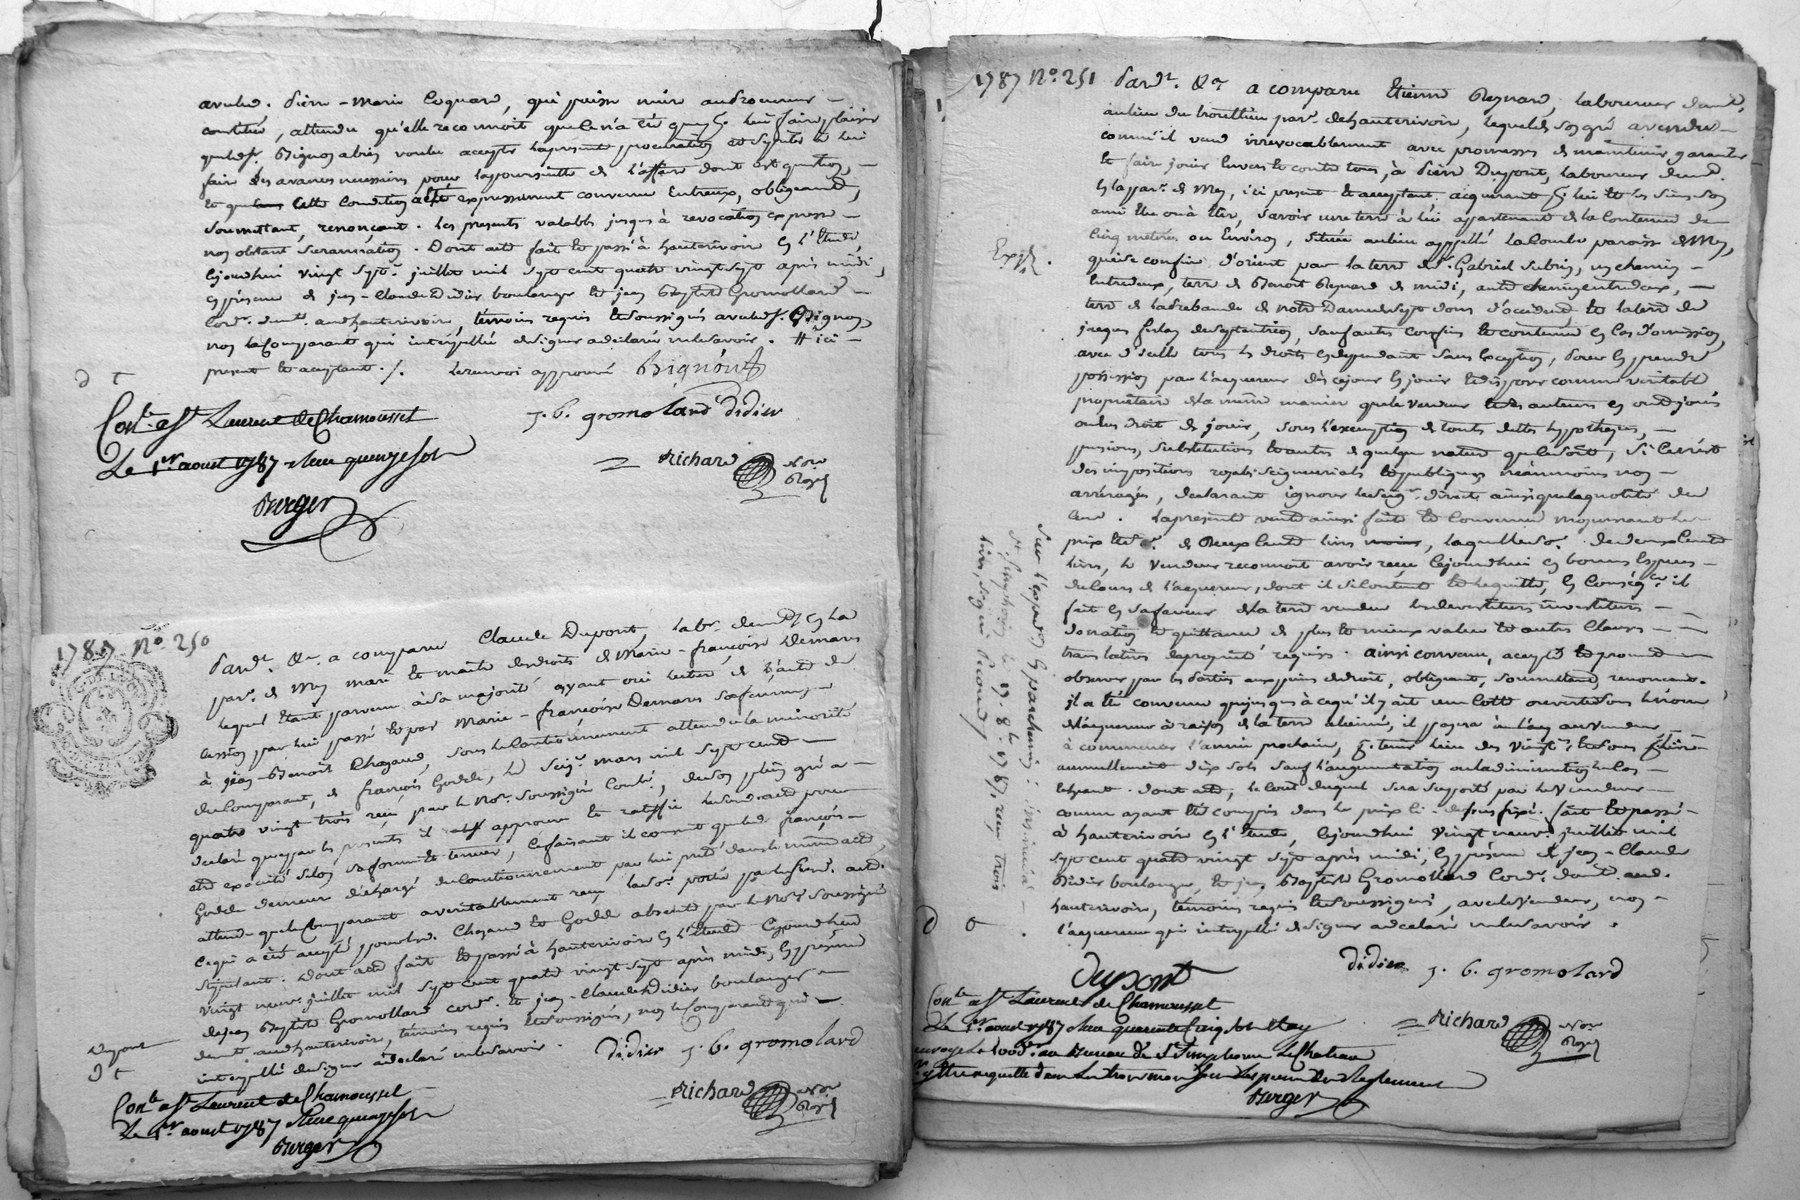 avec led. Pierre-Marie Coquard, qui puisse nuire audit procureur
constitué, attendu qu'elle reconnoit que
led. Sr. Bignon a bien voulu accepter la présente procuration et
faire les avances nécessaires pour la poursuite de l'affaire dont est question,
et que cette condition a été expressement convenue entr'eux, obligeant,
soumettant, renonçant. Les présentes valables jusqu'à révocation expresse
nonobstant surannation. Dont acte fait et passé à hauterivoire en l'étude,
cejourdhui vingt sept juillet mil sept cent quatre vingt sept après midi,
en présence de jean-Claude Didier boulanger et jean Baptiste Gromollard
cordr. demt. audit hauterivoire, témoins requis et soussignés avec led. Sr. Bignon,
non la comparant qui interpellée de signer a déclaré ne le savoir. # ici
présent et acceptant ./. le renvoi approuvé Bignon
J. B. gromolard didier
Conlé. a St Laurent de Chamousset
Le 1er. aoust 1787 Reçu quinze sols
Richard Nore Royal
Berger
1787 No. 250
Pardt. &a. a comparu Claude Dupont, labr. demt. en la
par. de Mey mari et maître des droits de Marie-françoise Demars
lequel étant parvenu à sa majorité ayant oui lecture de l'acte de
cession par lui passé et par Marie-françoise Demars sa femme,
à jean-Benoit Chazaud, sous le cautionnement attendu la minorité
du comparant, de françois Godde, le seize mars mil sept cent
quatre vingt trois reçu par le Nore. soussigné Conlé., de son plein gré a
déclaré que par les présentes il approuve et ratiffie le susd. acte pour
être exécuté selon sa forme et teneur, ce faisant il consent que led. françois
Godde demeure déchargé du cautionnement par lui prêté dans le même acte,
attendu que le comparant a véritablement reçu la so. portée par le susd. acte.
ce qui a été accepté pour led. Chazaud et Godde absents par le Nore. soussigné
stipulant. Dont acte fait et passé à hauterivoire en l'étude cejourdhui
vingt neuf juillet mil sept cent quatre vingt sept après midi, en présence
de jean Baptiste Gromollard cordr. et jean-Claude Didier boulanger
demt. audit hauterivoire, témoins requis et soussignés, non le comparant qui
interpellé de signer a déclaré ne le savoir.
Dupont
didier J. B. gromolard
Conlé a St Laurent de Chamousset
Le 1er. aoust 1787 Reçu quinze sols
Richard Nore Royal
Berger
1787 No. 251
Pardt. &a. a comparu Etienne Regnard, laboureur demt.
au lieu du trouttieu par. de hauterivoire, lequel de son gré a vendu
comme il vend irrevocablement avec promesses de maintenir garantir
et faire jouir envers et contre tous, à Pierre Dupont, laboureur demt.
en la par. de Mey, ici présent et acceptant acquérant pr. lui et les siens son
ami élu ou à élire, savoir une terre à lui appartenant de la contenue de
cinq métérés ou environ, située au lieu appellé la Combe paroisse de Mey,
qui se confine d'orient par la terre de Sr. Gabriel Subrin, un chemin
entredeux, terre de Benoit Regnard de midi, autre chemin entredeux,
terre de la prébande de notre Dame de sept dons d'occident et la terre de
jacques de septentrion, sauf autres confins et contenue en cas d'omission,
avec d'icelle tous les droits en dependant sans exception, pour en prendre
possession par l'acquereur dès cejour en jouir et disposer comme véritable
propriétaire de la même manière que le vendeur et ses auteurs en ont joui
ou eu droit de jouir, sous l'exemption de toutes dettes hypotheques,
pensions, substitutions et autres de quelque nature qu'elles soient, si ce n'est
des impositions royales seigneuriales et publiques néanmoins non
arréragés, déclarant ignorer le seigr. direct ainsi que la quotité du
cens. La présente vente ainsi faite et convenue moyennant le
prix et so. de deux cents livres, laquelle so. de deux cents
livres, le vendeur reconnoit avoir reçue cejourdhui en bonnes espèces
de cours de l'acquereur, dont il se contente et le quitte, en conséqce. il
fait en sa faveur de la terre vendue les devestitures investitures
donation et quittance de plus et mieux value et autres clauses
translatives de propriété requises. ainsi convenu, accepté et promis
observer par les parties aux peines de droit, obligeant, soumettant, renonçant.
il a été convenu que jusques à ce qu'il y ait une cotte ouverte sous le nom
de l'acquereur à raison de la terre alienée, il payera au vendeur
à commencer l'année prochaine, pr. tenir lieu des vingt. et
annuellement dix sols sauf l'augmentation ou la diminution le cas
échéant. dont acte, le cout duquel sera supporté par le vendeur
comme ayant été compris dans le prix ci-dessus fixé. fait et passé
à hauterivoire en l'étude, cejourdhui vingt neuf juillet mil
sept cent quatre vingt sept après midi, en présence de jean-Claude
Didier boulanger, et jean Baptiste Gromollard cordr. demt. aud.
hauterivoire, témoins requis et soussignés, avec le vendeur, non
l'acquereur qui interpellé de signer a déclaré ne le savoir.
Expé.
Sur l'expédon. en parchemin : insinué à
St. Simphorien le 17. 8bre. 1787, reçu trois
livres, signé
dupont
didier J. B. gromolard
Conlé a St Laurent de Chamousset
Le 1er. aoust 1787 Reçu quarente cinq sols
Richard Nore Royal
au Bureau de St Simphorien le Chateau
Berger